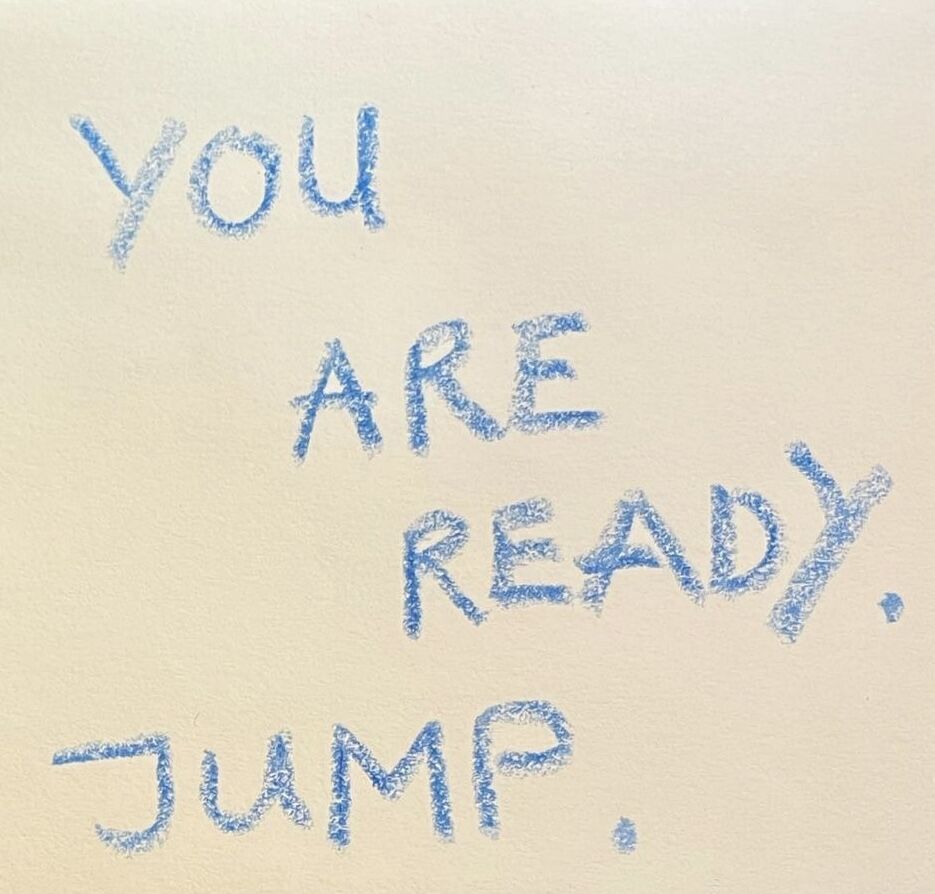 YOU
ARE
READY.
JUMP.